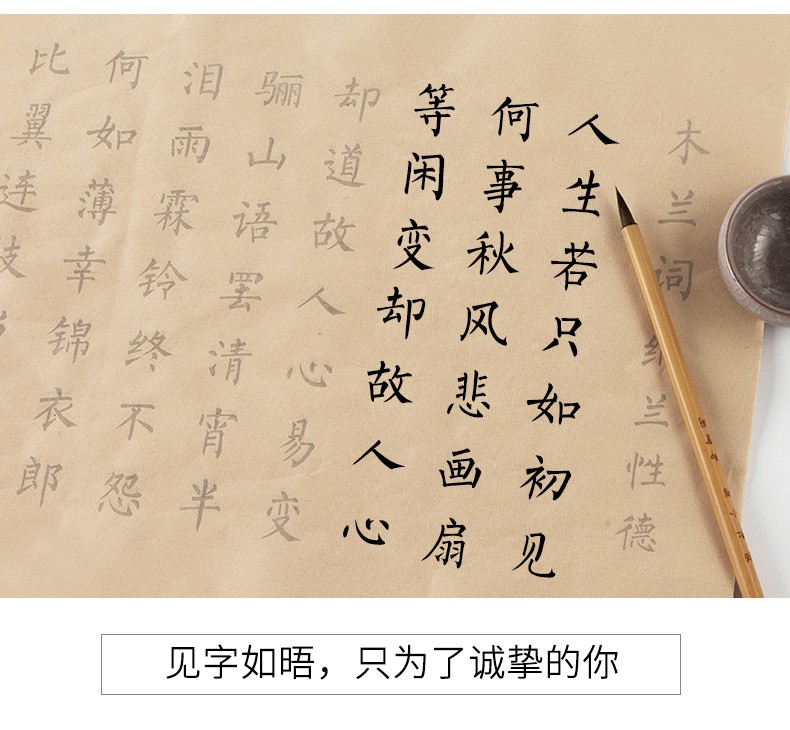 木兰词 纳兰性德
人生若只如初见
何事秋风悲画扇
等闲变却故人心
却道故人心易变
骊山语罢清宵半
泪雨霖铃终不怨
何如薄幸锦衣郎
比翼连枝
见字如晤，只为了诚挚的你